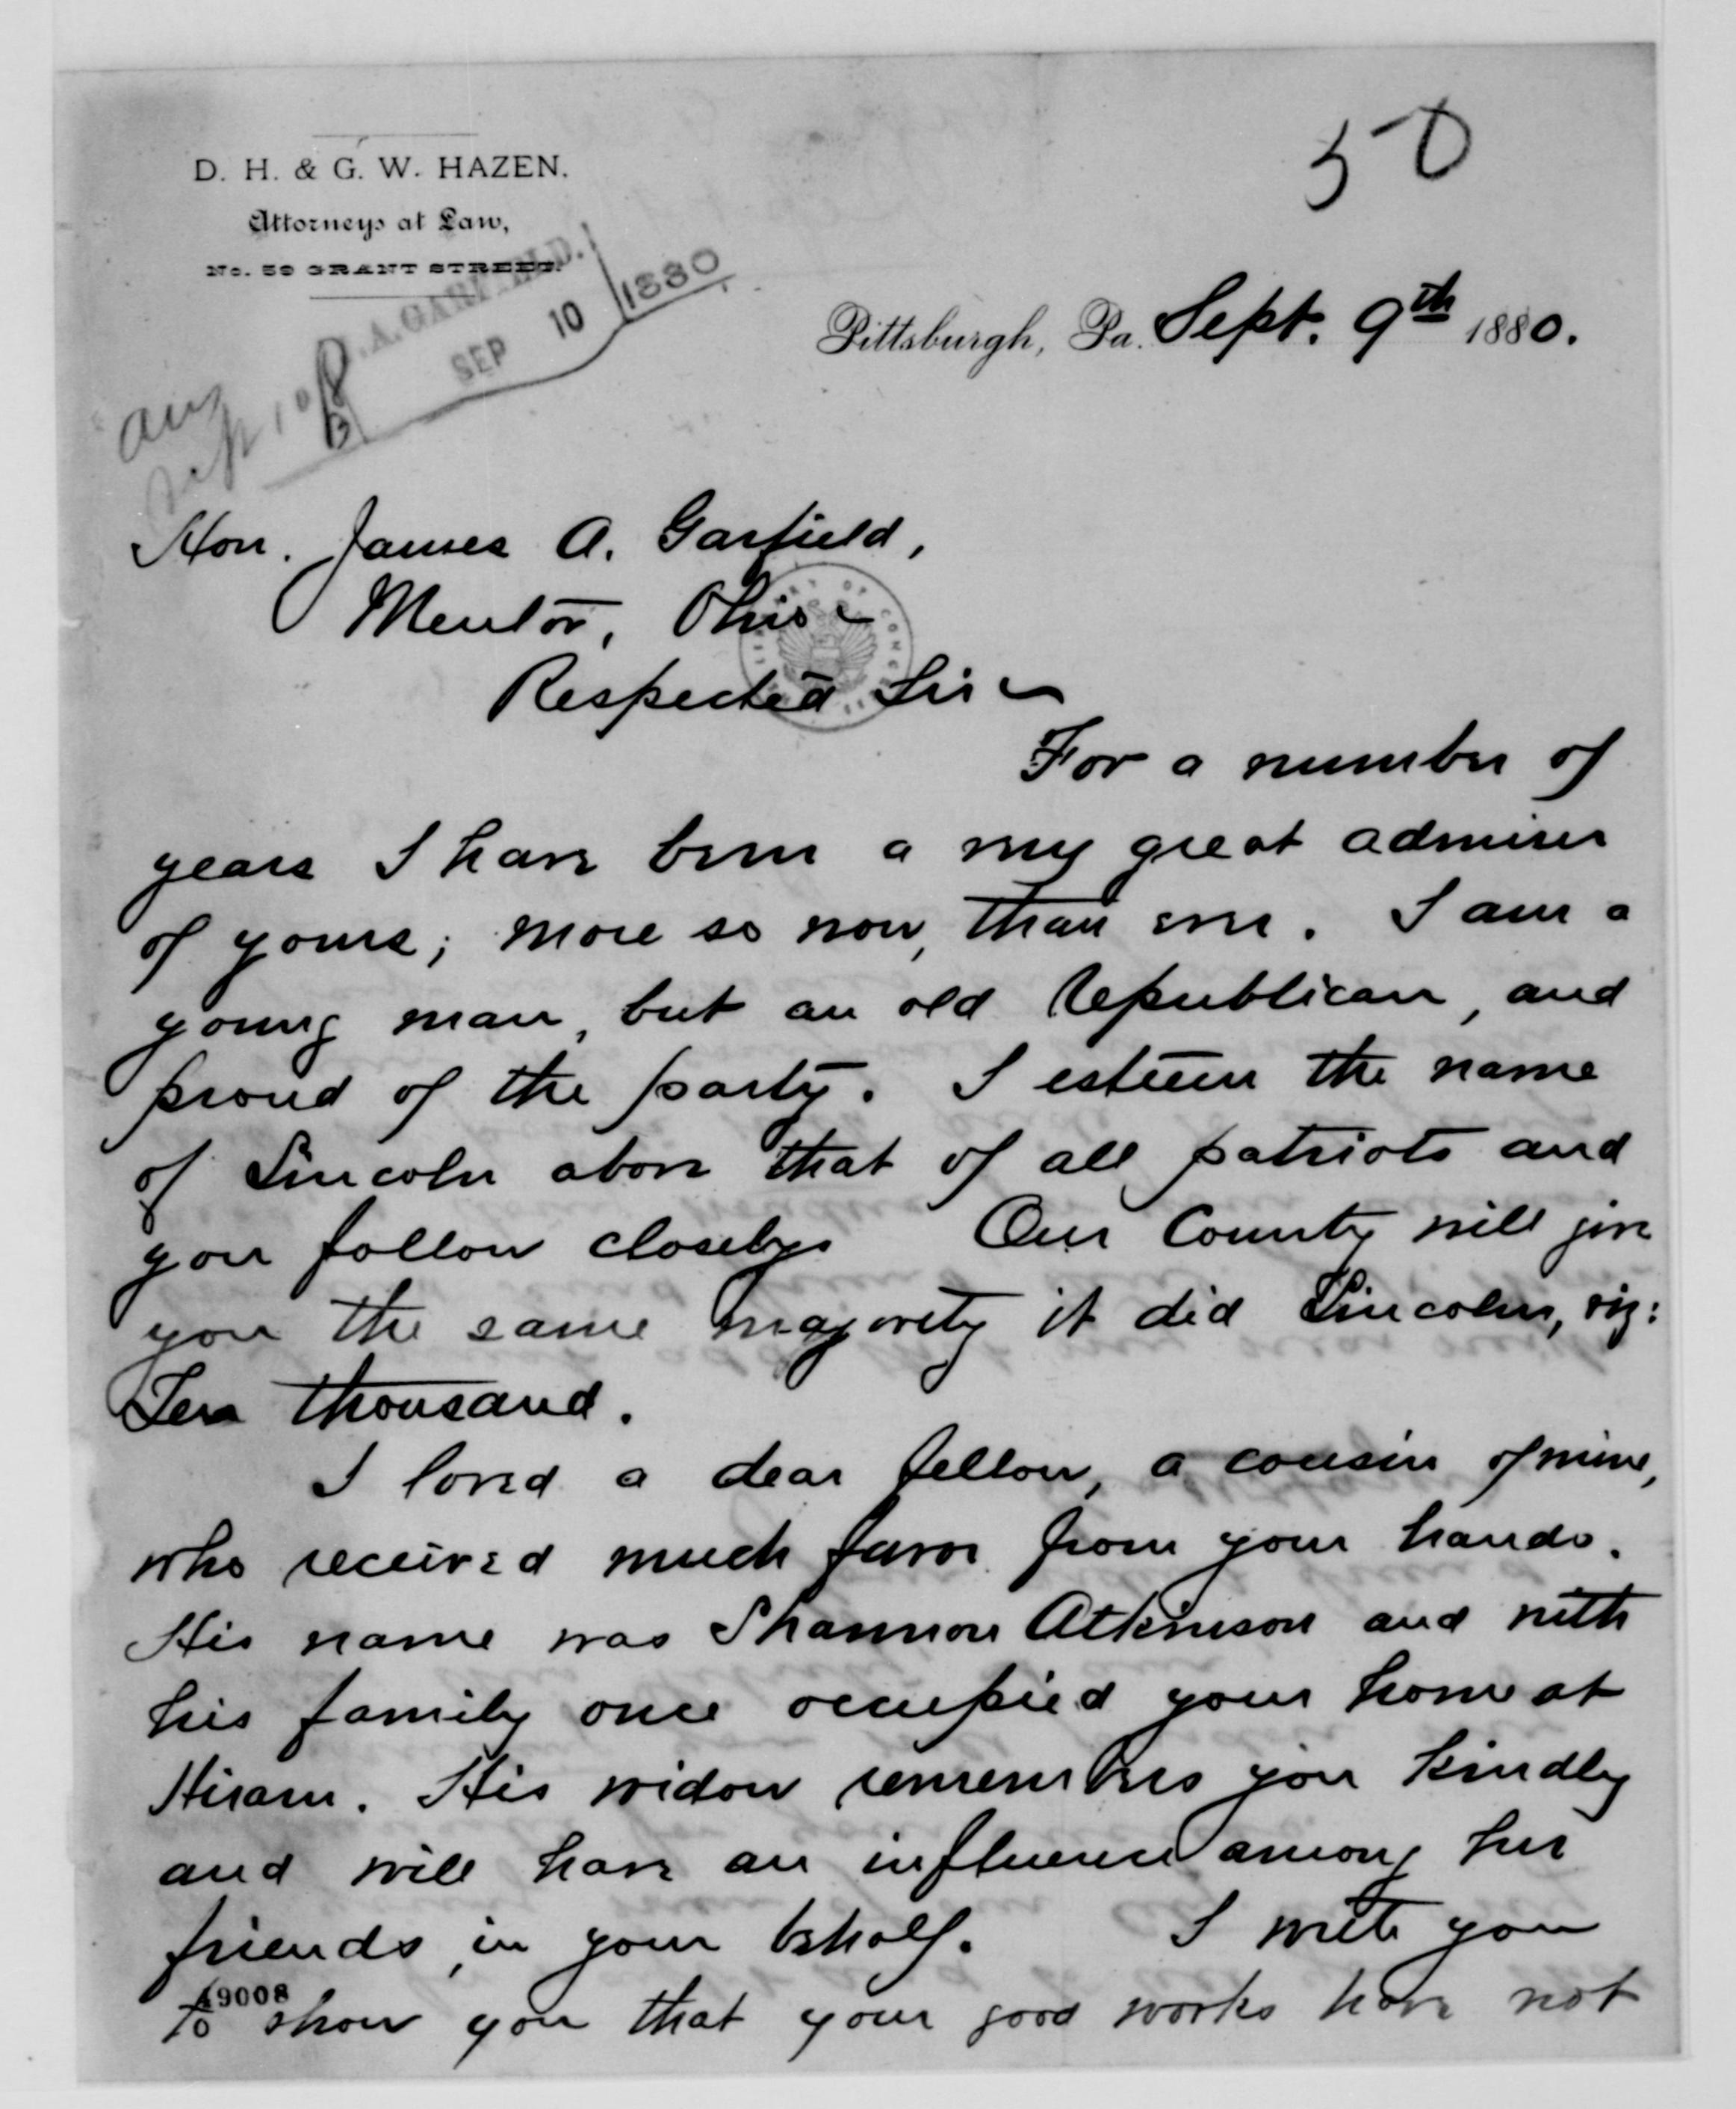 50
D. H. & G. W. HAZEN.
Attorneys at Law,
No. 59 GRANT STREET.
J. A. GARFIELD.
SEP 10 1880
Pittsburgh, Pa. Sept. 9th 1880.
Ans
Sept 10
Hon. James A. Garfield,
Mentor, Ohio
Respected Sir
For a number of
years I have been a very great admirer
of yours; more so now, than ever. I am a
young man, but an old Republican, and
proud of the party. I esteem the name
of Lincoln above that of all patriots and
you follow closely. Our County will give
you the same majority it did Lincoln, viz:
Ten thousand.
I loved a dear fellow, a cousin of mine,
who received much favor from your hands.
His name was Shannon Atkinson and with
his family once occupied your home at
Hiram. His widow remembers you kindly
and will have an influence among her
friends, in your behalf. I write you
to show you that your good works have not
49008